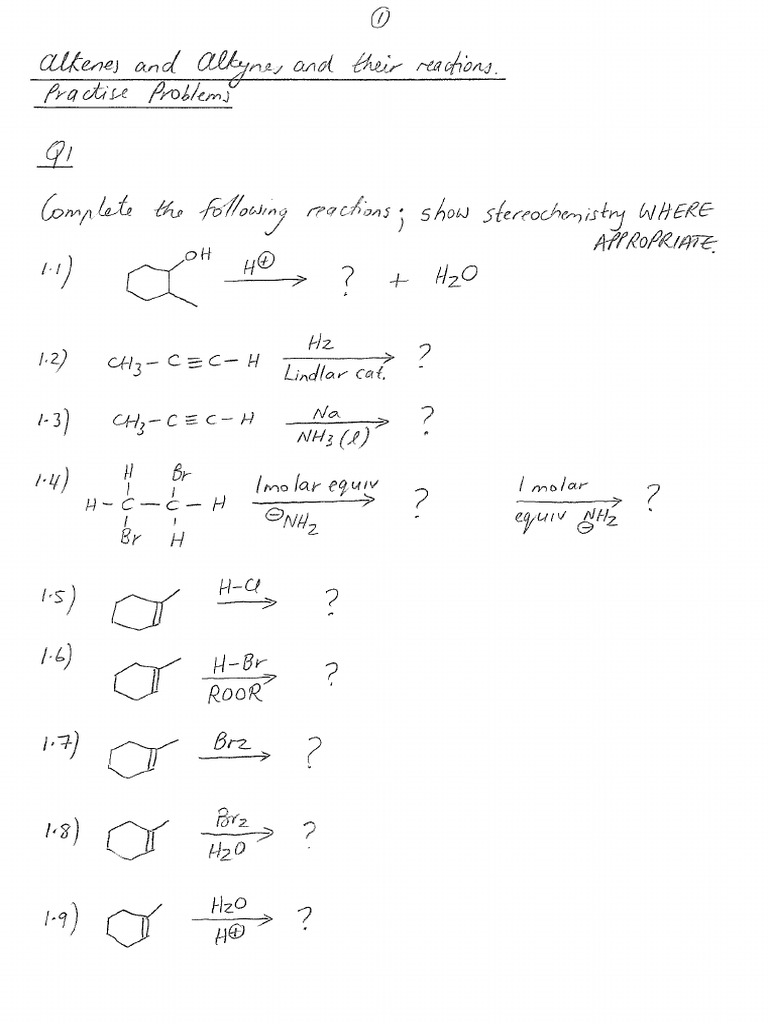 ①
Alkenes and Alkynes and their reactions.
Practise Problems
Q1
Complete the following reactions; show stereochemistry WHERE
APPROPRIATE.
1.1) OH H⊕ ? + H2O
1.2) CH3 – C ≡ C – H H2 Lindlar cat. ?
1.3) CH3 – C ≡ C – H Na NH3 (l) ?
1.4) H Br
H – C – C – H 1 molar equiv ⊖NH2 ? 1 molar equiv ⊖NH2 ?
Br H
1.5) H–Cl ?
1.6) H–Br ROOR ?
1.7) Br2 ?
1.8) Br2 H2O ?
1.9) H2O H⊕ ?